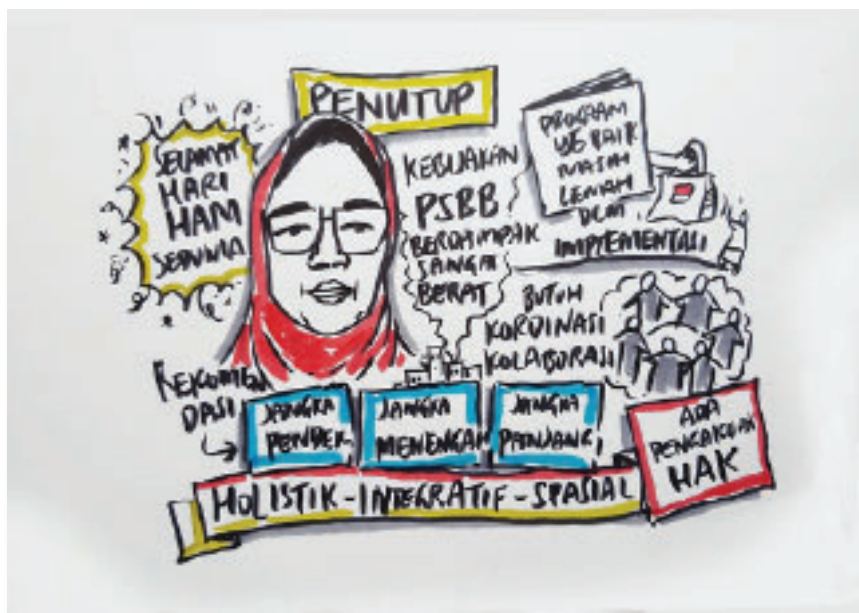 PENUTUP
SELAMAT
HARI
HAM
SEDUNIA
KEBIJAKAN
PSBB
BERDAMPAK
SANGAT
BERAT
PROGRAM
YG BAIK
MASIH
LEMAH
DLM
IMPLEMENTASI
BUTUH
KORDINASI
KOLABORASI
REKOMEN
DASI
JANGKA
PENDEK
JANGKA
MENENGAH
JANGKA
PANJANG
ADA
PENGAKUAN
HAK
HOLISTIK-INTEGRATIF-SPASIAL